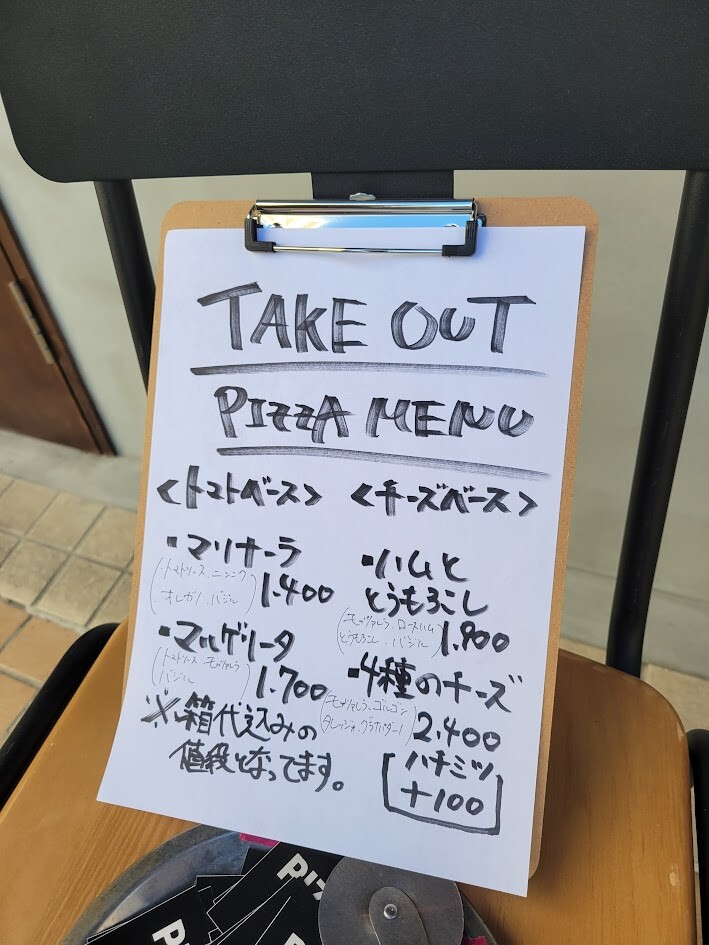 TAKE OUT
PIZZA MENU
<トマトベース>
・マリナーラ
(トマトソース、ニンニク
オレガノ、バジル)
1.400
・マルゲリータ
(トマトソース、モッツァレラ
バジル)
1.700
※箱代込みの
値段となってます。
<チーズベース>
・ハムと
とうもろこし
(モッツァレラ、ロースハム
とうもろこし、バジル)
1.900
・4種のチーズ
(モッツァレラ、ゴルゴン
タレッジョ、グラナパダーノ)
2.400
[ハチミツ
+100]